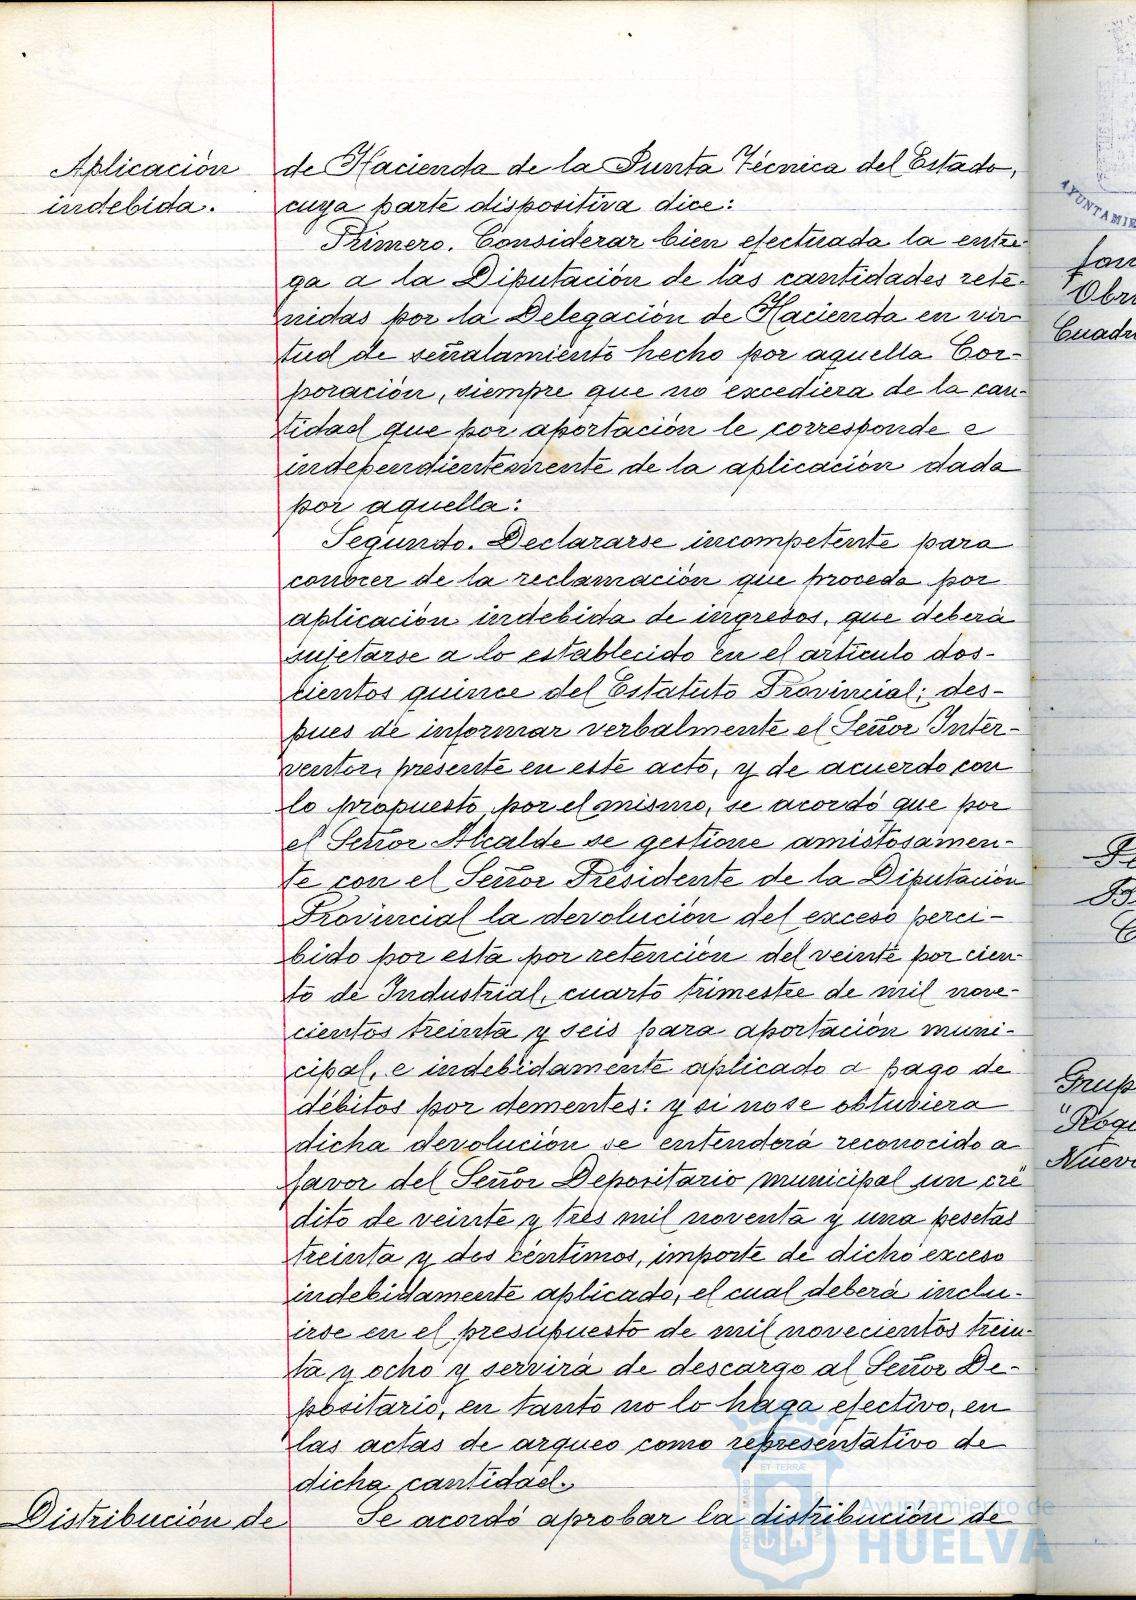 Aplicación
indebida.
de Hacienda de la Junta Técnica del Estado,
cuya parte dispositiva dice:
Primero. Considerar bien efectuada la entre-
ga a la Diputación de las cantidades rete-
nidas por la Delegación de Hacienda en vir-
tud de señalamiento hecho por aquella Cor-
poración, siempre que no excediera de la can-
tidad que por aportación le corresponde e
independientemente de la aplicación dada
por aquella:
Segundo. Declararse incompetente para
conocer de la reclamación que proceda por
aplicación indebida de ingresos, que deberá
sujetarse a lo establecido en el artículo dos-
cientos quince del Estatuto Provincial; des-
pues de informar verbalmente el Señor Inter-
ventor, presente en este acto, y de acuerdo con
lo propuesto por el mismo, se acordó que por
el Señor Alcalde se gestione amistosamen-
te con el Señor Presidente de la Diputación
Provincial la devolución del exceso perci-
bido por esta por retención del veinte por cien-
to de Industrial, cuarto trimestre de mil nove-
cientos treinta y seis para aportación muni-
cipal, e indebidamente aplicado a pago de
débitos por dementes: y si no se obtuviera
dicha devolución se entenderá reconocido a
favor del Señor Depositario municipal un cré
dito de veinte y tres mil noventa y una pesetas
treinta y dos céntimos, importe de dicho exceso
indebidamente aplicado, el cual deberá inclu-
irse en el presupuesto de mil novecientos trein-
ta y ocho y servirá de descargo al Señor De-
positario, en tanto no lo haga efectivo, en
las actas de arqueo como representativo de
dicha cantidad.
Distribución de
Se acordó aprobar la distribución de
Ayuntamiento de
HUELVA
AYUNTAMIE
Obr
Cuadr
Grup
"Roq
Nuev